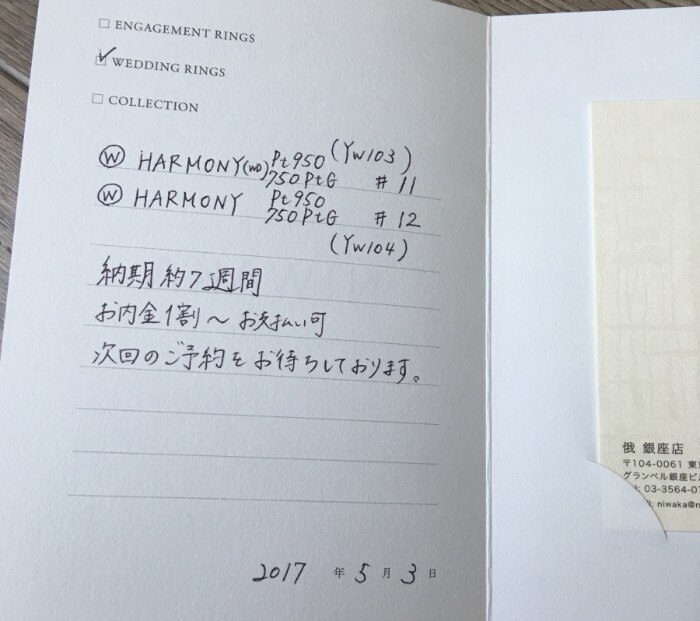 ENGAGEMENT RINGS
WEDDING RINGS
COLLECTION
Ⓦ HARMONY(WD) Pt950 (YW103)
750PtG #11
Ⓦ HARMONY Pt950
750PtG #12
(YW104)
納期約7週間
お内金1割〜お支払い可
次回のご予約をお待ちしております。
2017 年 5 月 3 日
俄 銀座店
〒104-0061 東
グランベル銀座ビ
: 03-3564-0
: niwaka@n